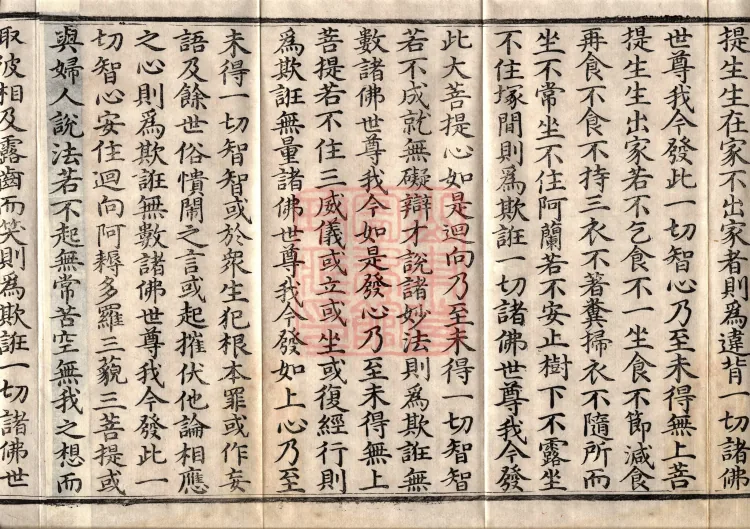 提生生在家不出家者則爲違背一切諸佛
世尊我今發此一切智心乃至未得無上菩
提生生出家若不乞食不一坐食不節減食
再食不食不持三衣不著糞掃衣不隨所而
坐不常坐不住阿蘭若不安止樹下不露坐
不住塚間則爲欺誑一切諸佛世尊我今發
此大菩提心如是迴向乃至未得一切智智
若不成就無礙辯才說諸妙法則爲欺誑無
數諸佛世尊我今如是發心乃至未得無上
菩提若不住三威儀或立或坐或復經行則
爲欺誑無量諸佛世尊我今發如上心乃至
未得一切智智或於衆生犯根本罪或作妄
語及餘世俗憒閙之言或起摧伏他論相應
之心則爲欺誑無數諸佛世尊我今發此一
切智心安住迴向阿耨多羅三藐三菩提或
與婦人說法若不起無常苦空無我之想而
取彼相及露齒而笑則爲欺誑一切諸佛世